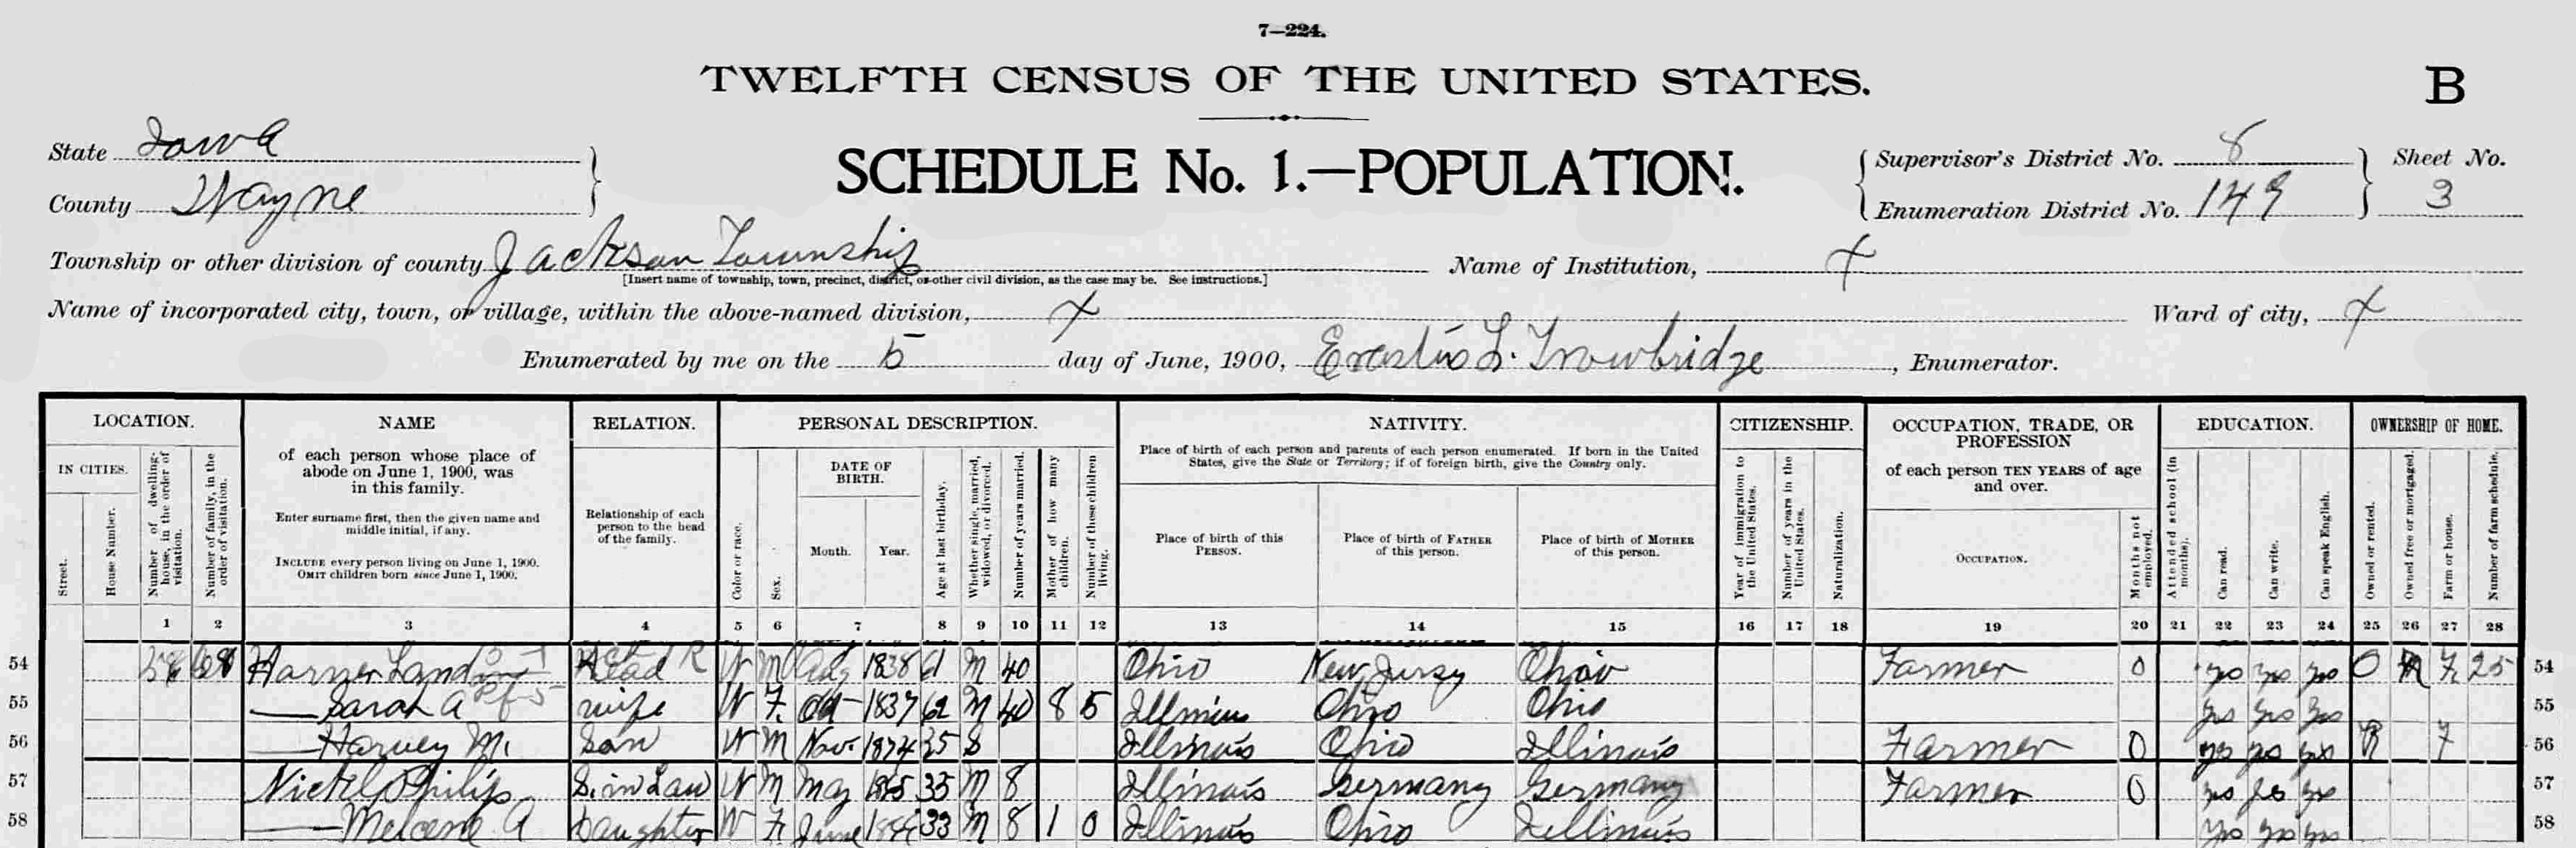 7—224.
TWELFTH CENSUS OF THE UNITED STATES.
B
State Iowa
County Wayne
SCHEDULE No. 1.—POPULATION.
Supervisor's District No. 8
Enumeration District No. 149
Sheet No.
3
Township or other division of county Jackson Township
[Insert name of township, town, precinct, district, or other civil division, as the case may be. See instructions.]
Name of Institution, X
Name of incorporated city, town, or village, within the above-named division, X
Ward of city, X
Enumerated by me on the 5 day of June, 1900, Erastus L. Trowbridge, Enumerator.
LOCATION.
IN CITIES.
Street.
House Number.
Number of dwelling-house, in the order of visitation.
Number of family, in the order of visitation.
NAME
of each person whose place of
abode on June 1, 1900, was
in this family.
Enter surname first, then the given name and
middle initial, if any.
INCLUDE every person living on June 1, 1900.
OMIT children born since June 1, 1900.
RELATION.
Relationship of each
person to the head
of the family.
PERSONAL DESCRIPTION.
Color or race.
Sex.
DATE OF
BIRTH.
Month.
Year.
Age at last birthday.
Whether single, married, widowed, or divorced.
Number of years married.
Mother of how many children.
Number of these children living.
NATIVITY.
Place of birth of each person and parents of each person enumerated. If born in the United
States, give the State or Territory; if of foreign birth, give the Country only.
Place of birth of this
PERSON.
Place of birth of FATHER
of this person.
Place of birth of MOTHER
of this person.
CITIZENSHIP.
Year of immigration to the United States.
Number of years in the United States.
Naturalization.
OCCUPATION, TRADE, OR
PROFESSION
of each person TEN YEARS of age
and over.
OCCUPATION.
Months not employed.
EDUCATION.
Attended school (in months).
Can read.
Can write.
Can speak English.
OWNERSHIP OF HOME.
Owned or rented.
Owned free or mortgaged.
Farm or house.
Number of farm schedule.
1 2 3 4 5 6 7 8 9 10 11 12 13 14 15 16 17 18 19 20 21 22 23 24 25 26 27 28
54 Head W M Aug 1838 61 M 40 Ohio New Jersy Ohio Farmer 0 yes yes yes O M F 25 54
55 — Sarah A wife W F Oct 1837 62 M 40 8 5 Illinois Ohio Ohio yes yes yes 55
56 — Harvey M. Son W M Nov. 1874 25 S Illinois Ohio Illinois Farmer 0 yes yes yes R F 56
57 Nickel Philip S. in Law W M May 1865 35 M 8 Illinois Germany Germany Farmer 0 yes yes yes 57
58 — A Daughter W F June 33 M 8 1 0 Illinois Ohio Illinois yes yes yes 58